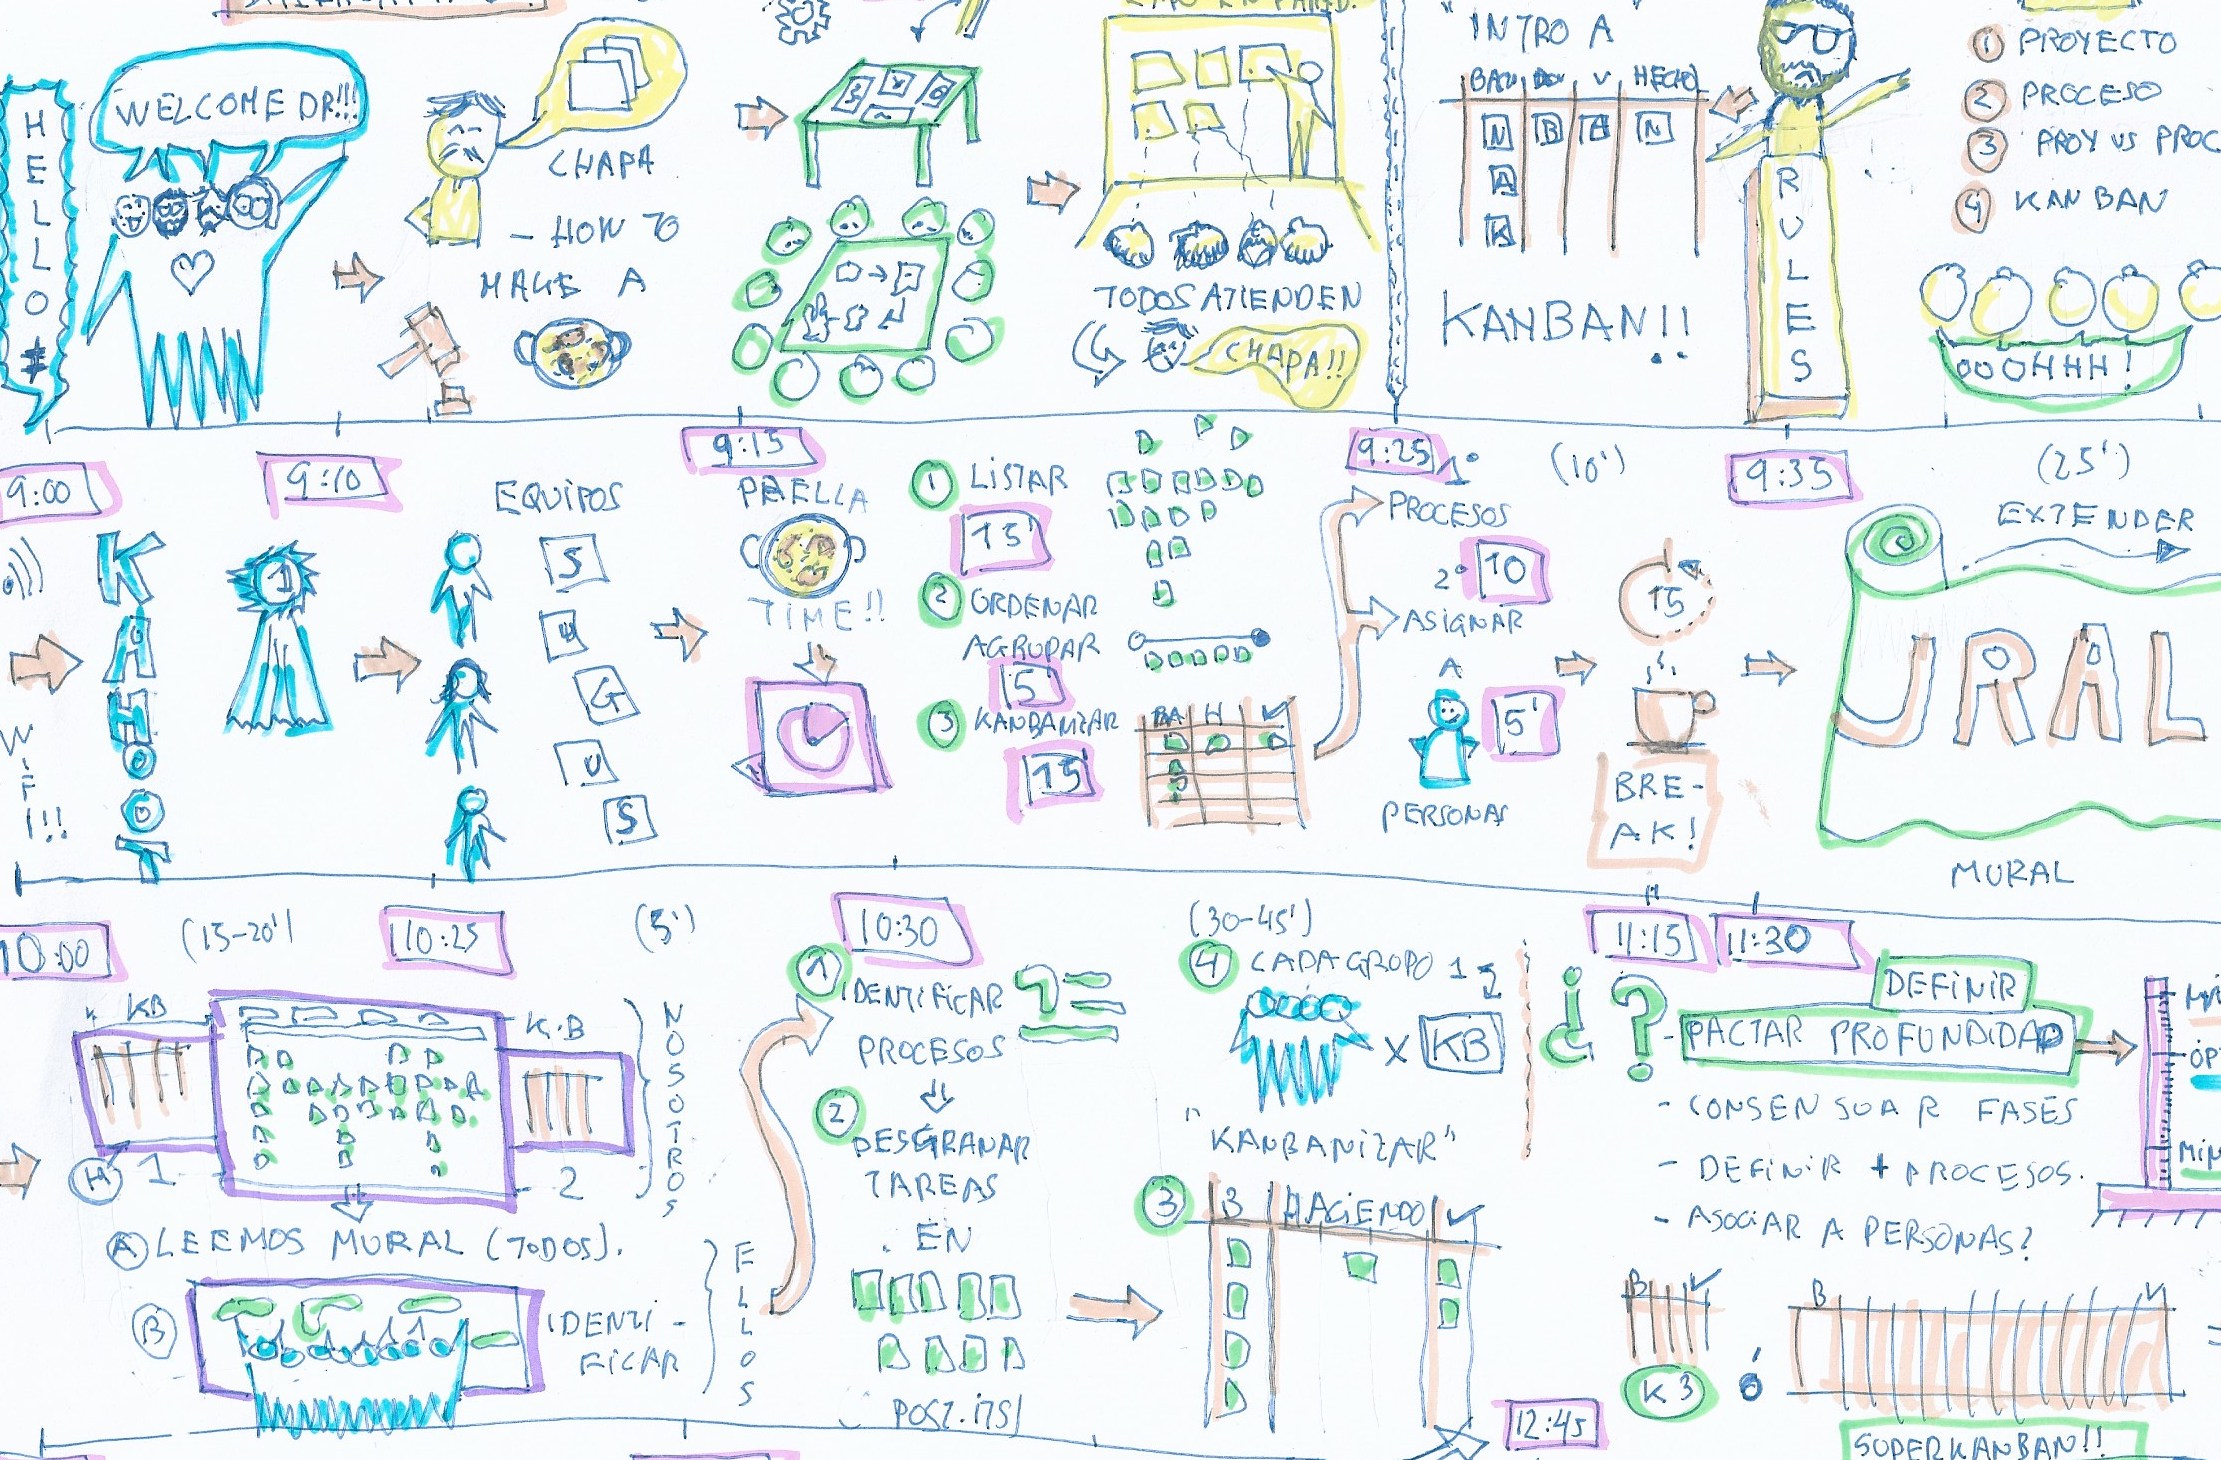 HELLO
WELCOME DR!!!
CHAPA
- HOW TO
MAKE A
TODOS ATIENDEN
CHAPA!!
"INTRO A
HECHO
KANBAN!!
RULES
1 PROYECTO
2 PROCESO
3 PROY VS PROC
4 KANBAN
OOOHHH!
9:00
9:10
EQUIPOS
9:15
PAELLA
TIME!!
1 LISTAR
15'
2 ORDENAR
AGRUPAR
5'
3 KANBANIZAR
15'
BA H ✓
9:25
1º
PROCESOS
2º 10
ASIGNAR
A
5'
PERSONAS
(10')
15
BRE-
AK!
9:35
(25')
EXTENDER
URAL
MURAL
WiFI!!
KAHOOT
1
S
U
G
U
S
10:00
(15-20')
10:25
(5')
KB
K.B
H 1
2
NOSOTROS
A LEEMOS MURAL (TODOS).
B
IDENTI-
FICAR
ELLOS
10:30
1 IDENTIFICAR
PROCESOS
2
DESGRANAR
TAREAS
EN
POST.ITS
(30-45')
4 CADA GRUPO 1
X KB
"KANBANIZAR"
3 B HACIENDO ✓
11:15
11:30
¿?
DEFINIR
- PACTAR PROFUNDIDAD
- CONSENSUAR FASES
- DEFINIR + PROCESOS.
- ASOCIAR A PERSONAS?
ÓP
MÍN
B ✓
K3
ó
B ✓
12:45
SUPERKANBAN!!